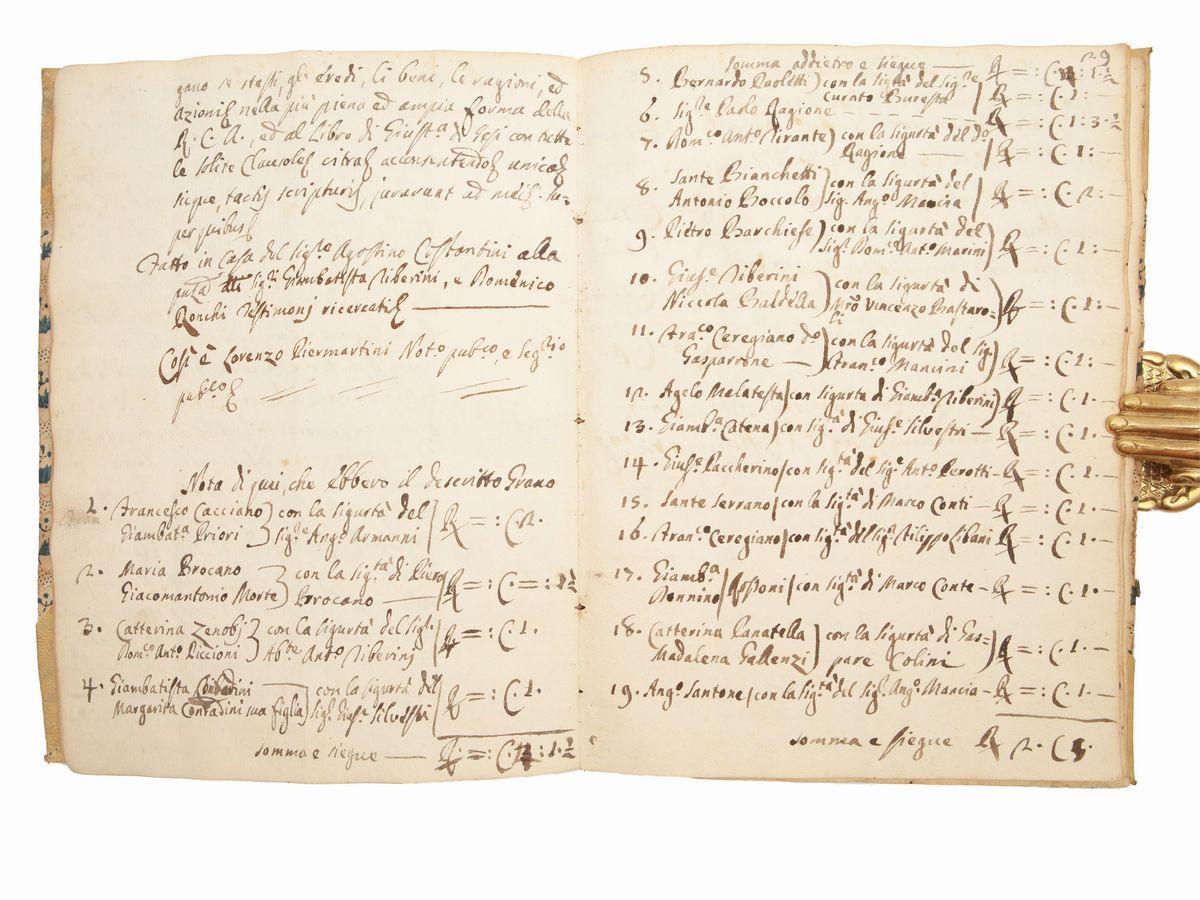 gano se stessi, gl'Eredi, li beni, le ragioni, ed
azioni nella più piena ed ampia forma della
R. C. A., ed al Libro di Giust.a di Jesi con tutte
le solite Clausole citra acconsentendo unica
sicque, tactis scripturis, juravunt ad
per quibus
Fatto in Casa del Sig.re Agostino Costantini alla
Sig.r Giambatista Tiberini, e Domenico
Ronchi Testimonj ricercati
Così è Lorenzo Piermartini Not.o pub.co, e Seg.rio
pub.co
Nota di quei, che ebbero il descritto Grano
1. Francesco Cacciano) con la sigurtà del
Giambat.a Priori ) Sig.re Ang.o Armanni R =: C. 2.
2. Maria Brocano ) con la sig.tà di Piero
Giacomantonio Morte) Brocano — R =: C. =: 1½
3. Catterina Zenobj ) con la sigurtà del Sig.r
Dom.co Ant.o Piccioni ) Ab.te Ant.o Tiberinj R =: C. 1.
4. Giambatista Contadini ) con la sigurtà del
Margarita Contadini sua figlia) Sig.r Gius.e Silvestri R =: C. 1.
Somma e siegue — R. =: C. : 1. ½
29
Somma addietro e siegue — R =: C. : 1. ½
5. Bernardo Paoletti) con la Sig.tà del Sig.re
Curnto Buresta R =: C. 1: —
6. Sig.re Paolo Ragione — R =: C. 1: 3. ½
7. Dom.co Ant.o Tirante) con la sigurtà del do
Ragione — R =: C. 1: —
8. Sante Bianchetti ) con la sigurtà del
Antonio Boccolo ) Sig. Ang.o Mancia R =: C. 2. —
9. Pietro Barchiese) con la sigurtà del
Sig.r Dom.co Ant.o Marino R =: C. 1: —
10. Gius.e Tiberini ) con la sigurtà di
Niccola Baldella ) Mro Vincenzo Bastaro-
li R =: C. 1: —
11. Fra.co Ceregiano do ) con la sigurtà del Sig.
Gasparrone — ) Fran.co Mancini R =: C. 1: —
12. Agelo Malatesta) con sigurtà di Giamb.a Tiberini) R =: C. 1. —
13. Giamb.a Catena) con sig.tà di Gius.e Silvestri — R =: C. 1. —
14. Gius.e Paccherino) con sig.tà del Sig.r Ant.o Perotti — R =: C. 1. —
15. Sante Serrano) con la sig.tà di Marco Conti — R =: C. 1. —
16. Fran.co Ceregiano) con sig.tà del Sig.r Filippo Libani R =: C. 1. —
17. Giamb.a
Bonnino) con sig.tà di Marco Conte — R =: C. 1. —
18. Catterina Panatella ) con la sigurtà di Gas-
Madalena Gallenzi ) pare Colini R =: C. 1. —
19. Ang.o Santone) con la sig.tà del Sig.r Ang.o Mancia — R =: C. 1. —
Somma e siegue R 2. C